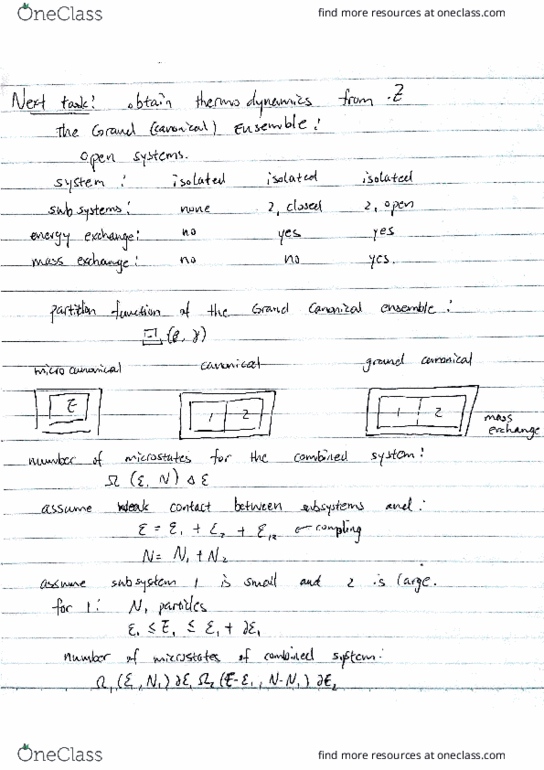 OneClass find more resources at oneclass.com
Next task: obtain thermodynamics from Z
the Grand (canonical) Ensemble:
open systems.
system: isolated isolated isolated
subsystems: none 2, closed 2, open
energy exchange: no yes yes
mass exchange: no no yes.
partition function of the Grand Canonical ensemble:
Ξ, (β, γ)
micro canonical canonical ground canonical
E 1 2 1 2 mass
exchange
number of microstates for the combined system:
Ω (E, N) Δ E
assume weak contact between subsystems and:
E = E₁ + E₂ + E₁₂ ← coupling
N = N₁ + N₂
assume subsystem 1 is small and 2 is large.
for 1: N₁ particles
E₁ ≤ E₁ ≤ E₁ + ∂E₁
number of microstates of combined system:
Ω₁ (E₁, N₁) ∂E₁ Ω₂ (E-E₁, N-N₁) ∂E₂
OneClass find more resources at oneclass.com